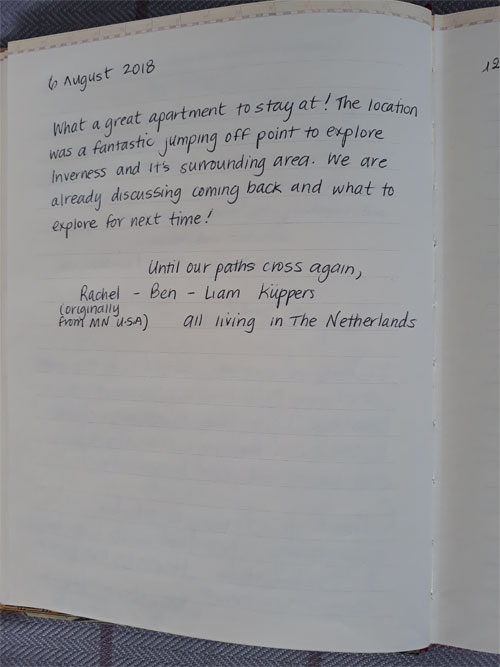 6 August 2018
What a great apartment to stay at! The location
was a fantastic jumping off point to explore
Inverness and it's surrounding area. We are
already discussing coming back and what to
explore for next time!
Until our paths cross again,
Rachel - Ben - Liam Küppers
(originally
from MN U.S.A) all living in The Netherlands
12